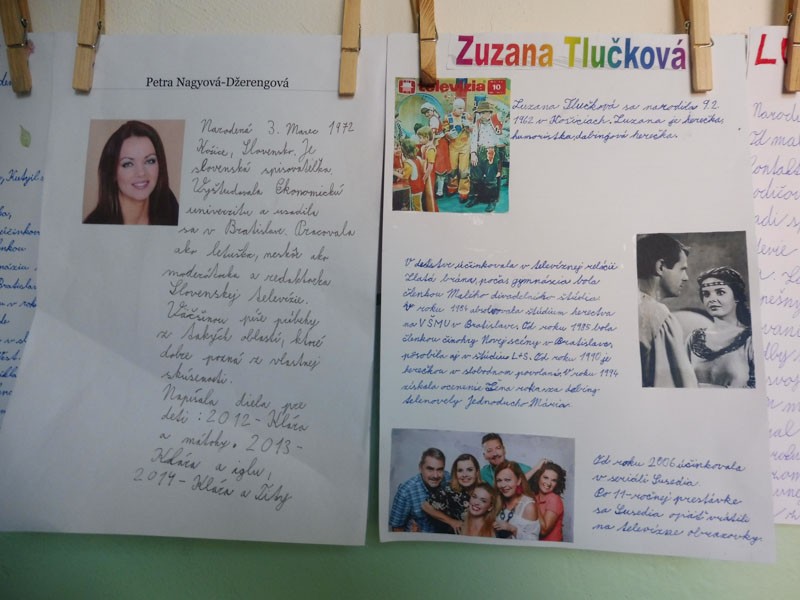 Petra Nagyová-Džerengová
Narodená 3. Marec 1972
Košice, Slovensko. Je
slovenská spisovateľka.
Vyštudovala Ekonomickú
univerzitu a usadila
sa v Bratislave. Pracovala
ako letuška, neskôr ako
moderátorka a redaktorka
Slovenskej televízie.
Väčšinou píše príbehy
z takých oblastí, ktoré
dobre pozná z vlastnej
skúsenosti.
Napísala diela pre
deti: 2012- Klára
a mátohy. 2013-
Klára a iglu,
2014- Klára a
Zuzana Tlučková
televízia 10
Zuzana Tlučková sa narodila 9.2.
1962 v Košiciach. Zuzana je herečka,
humoristka, dabingová herečka.
V detstve účinkovala v televíznej relácii
Zlatá brána, počas gymnázia bola
členkou Malého divadelného štúdia.
V roku 1984 absolvovala štúdium herectva
na VŠMU v Bratislave. Od roku 1985 bola
členkou činohry Novej scény v Bratislave,
pôsobila aj v štúdiu L+S. Od roku 1990 je
herečkou v slobodnom povolaní. V roku 1994
získala ocenenie Cena roka za dabing
telenovely Jednoducho Mária.
Od roku 2006 účinkovala
v seriáli Susedia
Po 11-ročnej prestávke
sa Susedia opäť vrátili
na televízne obrazovky.